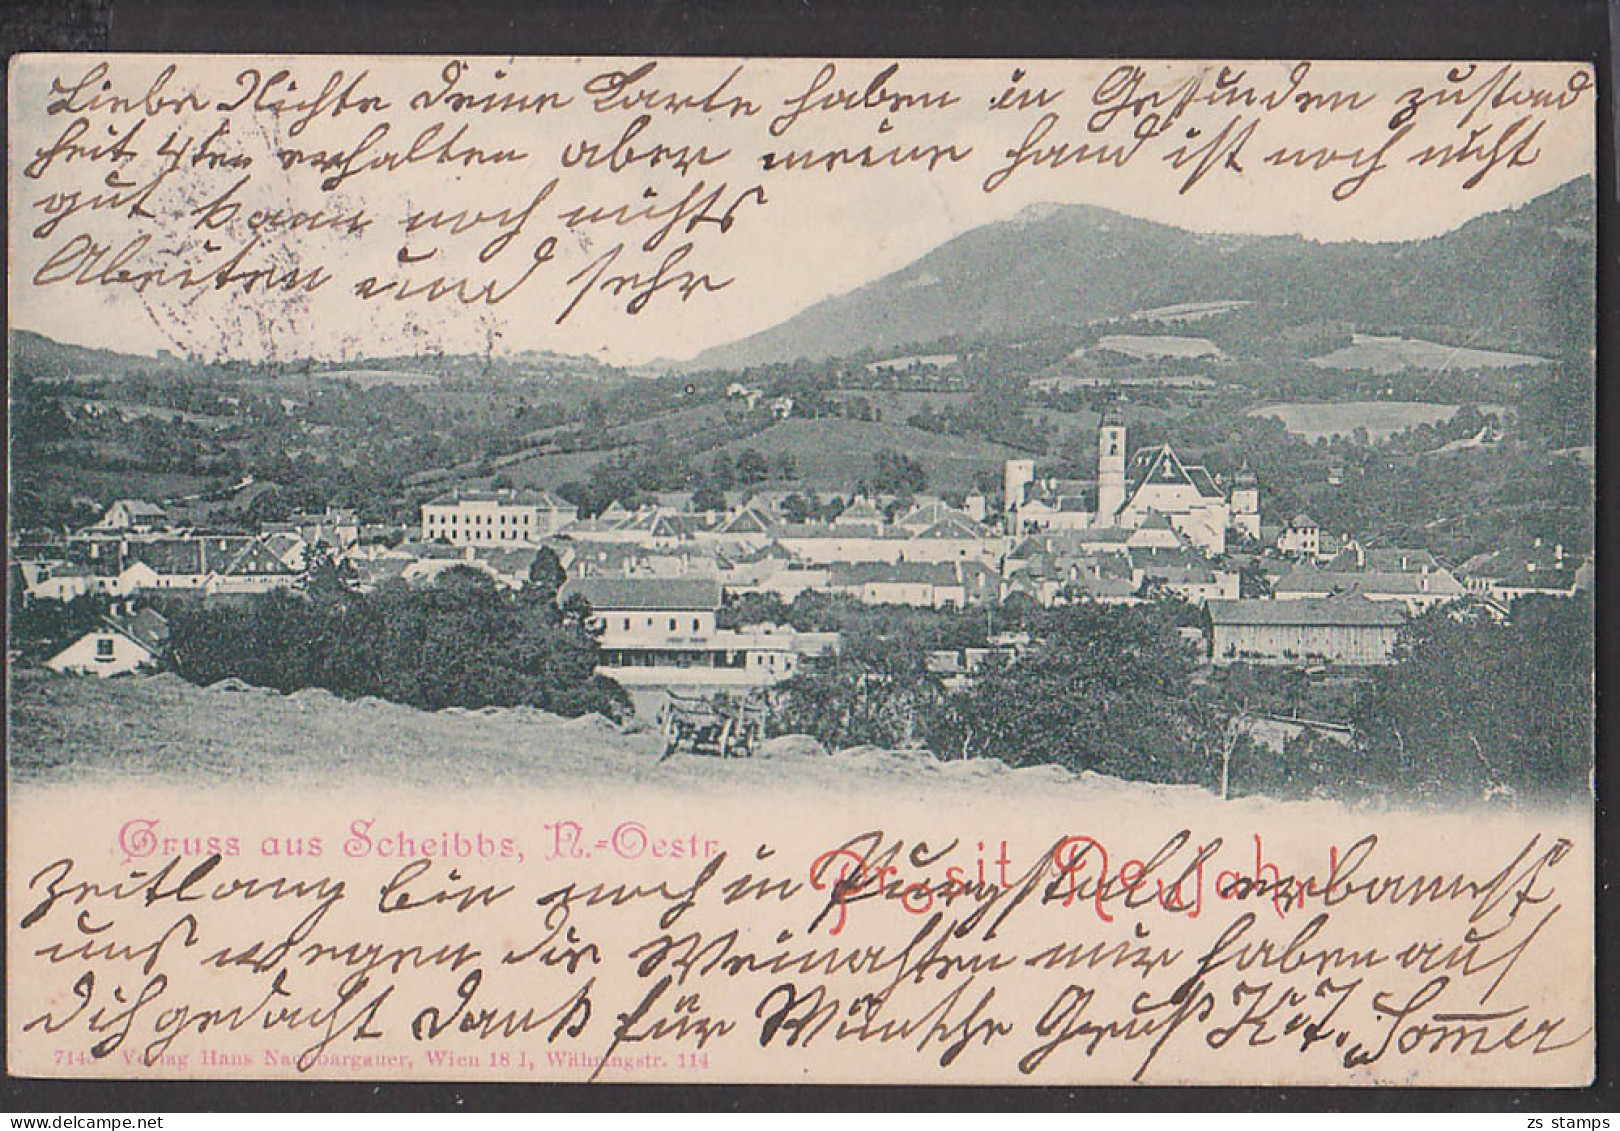 Liebe Nichte deine Karte haben in Gesunden zustand
heit 4ten erhalten aber meine hand ist noch nicht
gut kann noch nichts
Abeiten und sehr
Gruss aus Scheibbs, N.-Oestr.
Prosit Neujahr!
zeitlang bin noch in Purgstall verbannst
uns wegen die Weinachten mir haben auf
dich gedacht Dank für Wünsche Gruß K. u. J. Sommer
7143 Verlag Hans Nachbargauer, Wien 18 1, Währingstr. 114
zs stamps